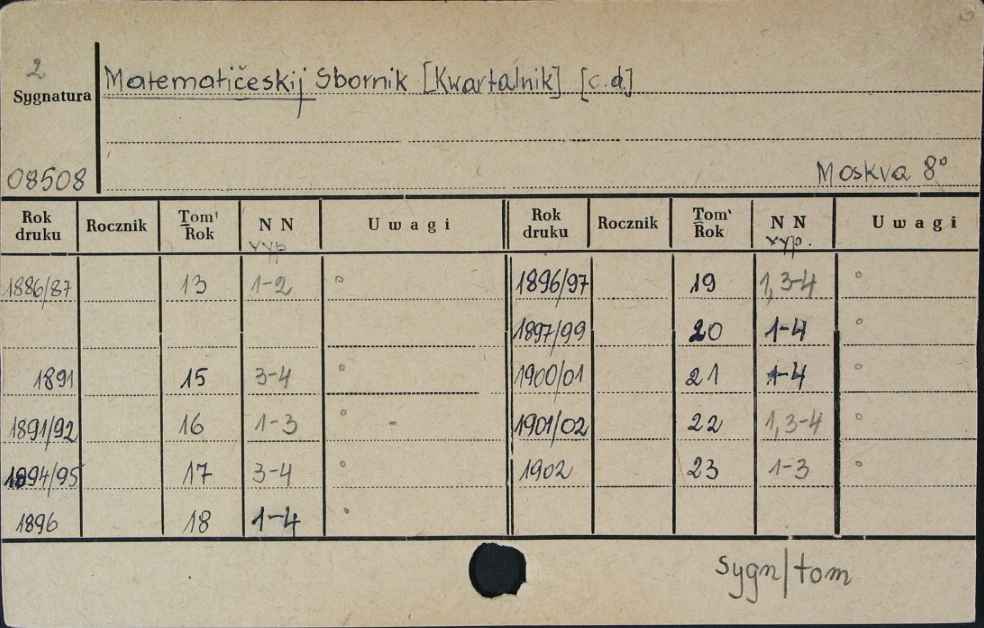 2
Sygnatura
Matematičeskij Sbornik [Kwartalnik] [c.d]
08508
Moskva 8°
Rok druku Rocznik Tom Rok N N wyp Uwagi Rok druku Rocznik Tom Rok N N wyp. Uwagi
1886/87 13 1-2 ° 1896/97 19 1,3-4 °
1897/99 20 1-4 °
1891 15 3-4 ° 1900/01 21 1-4 °
1891/92 16 1-3 ° - 1901/02 22 1,3-4 °
1894/95 17 3-4 ° 1902 23 1-3 °
1896 18 1-4 °
sygn/tom